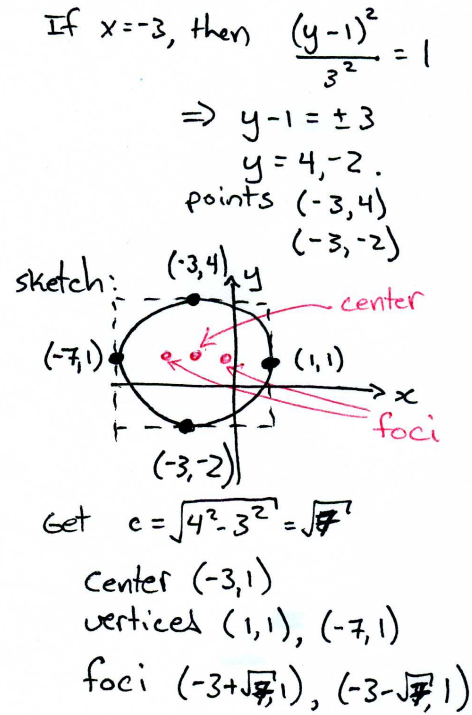 If x=-3, then (y-1)²/3² = 1
⇒ y-1 = ±3
y = 4,-2.
points (-3,4)
(-3,-2)
sketch:
(-3,4) y
center
(-7,1) (1,1)
x
foci
(-3,-2)
Get c = √(4²-3²) = √7
center (-3,1)
vertices (1,1), (-7,1)
foci (-3+√7,1), (-3-√7,1)